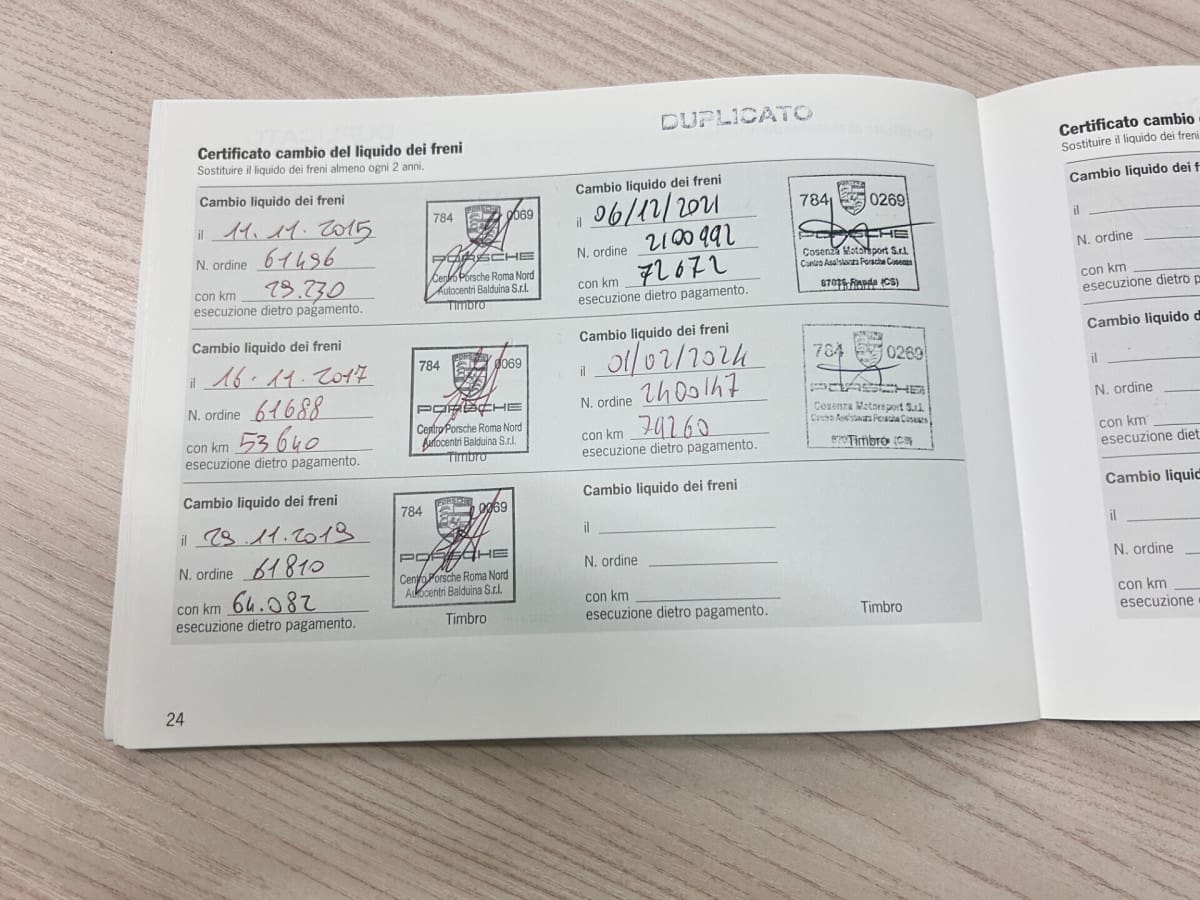 DUPLICATO
Certificato cambio del liquido dei freni
Sostituire il liquido dei freni almeno ogni 2 anni.
Cambio liquido dei freni
il 11.11.2015
N. ordine 61496
con km 29.230
esecuzione dietro pagamento.
784 0069
PORSCHE
Centro Porsche Roma Nord
Autocentri Balduina S.r.l.
Timbro
Cambio liquido dei freni
il 16.11.2017
N. ordine 61688
con km 53640
esecuzione dietro pagamento.
784 0069
PORSCHE
Centro Porsche Roma Nord
Autocentri Balduina S.r.l.
Timbro
Cambio liquido dei freni
il 29.11.2019
N. ordine 61810
con km 64.082
esecuzione dietro pagamento.
PORSCHE
784 0069
PORSCHE
Centro Porsche Roma Nord
Autocentri Balduina S.r.l.
Timbro
Cambio liquido dei freni
il 06/12/2021
N. ordine 2100992
con km 72672
esecuzione dietro pagamento.
784 0269
PORSCHE
Cosenza Motorsport S.r.l.
Centro Assistenza Porsche Cosenza
87036 Rende (CS)
Cambio liquido dei freni
il 01/02/2024
N. ordine 2400147
con km 79260
esecuzione dietro pagamento.
784 0269
PORSCHE
Cosenza Motorsport S.r.l.
Centro Assistenza Porsche Cosenza
Timbro (CS)
Cambio liquido dei freni
il
N. ordine
con km
esecuzione dietro pagamento.
Timbro
24
Certificato cambio
Sostituire il liquido dei freni
Cambio liquido dei
il
N. ordine
con km
esecuzione dietro
Cambio liquido
il
N. ordine
con km
esecuzione dietro
Cambio
il
N. ordine
con km
esecuzione